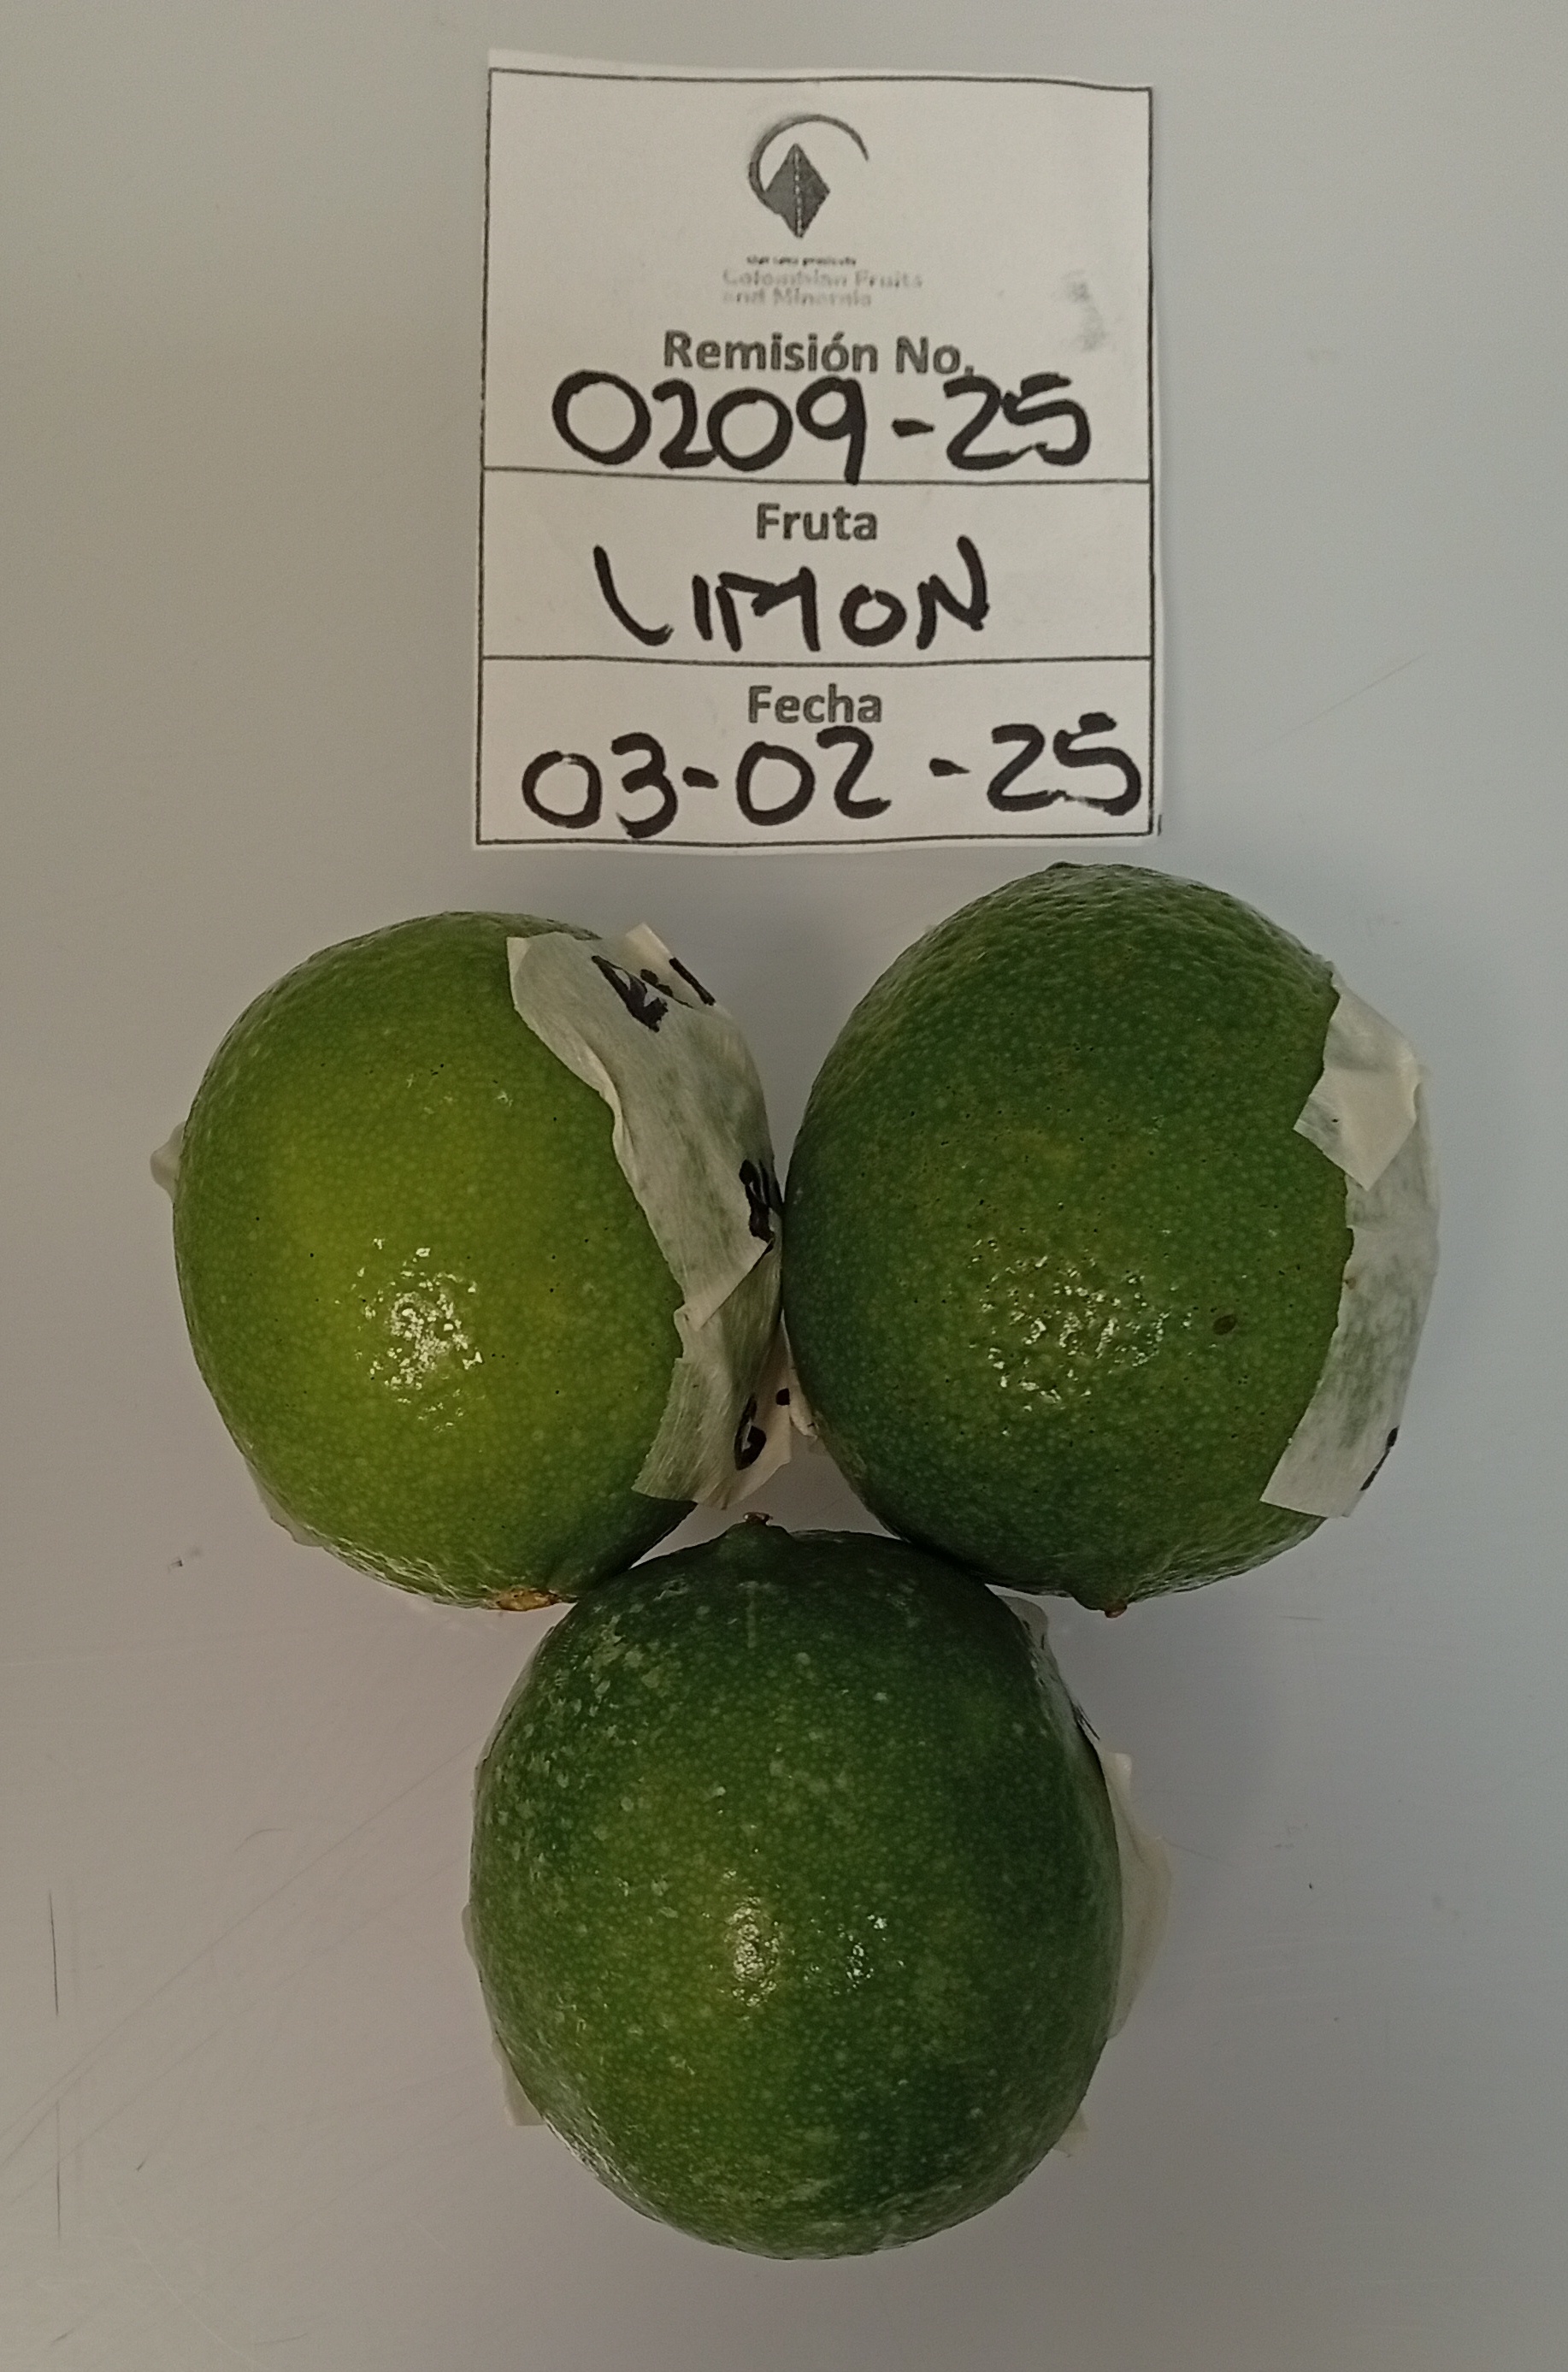 Colombian Fruits
and Minerals
Remisión No.
0209-25
Fruta
LIMON
Fecha
03-02-25